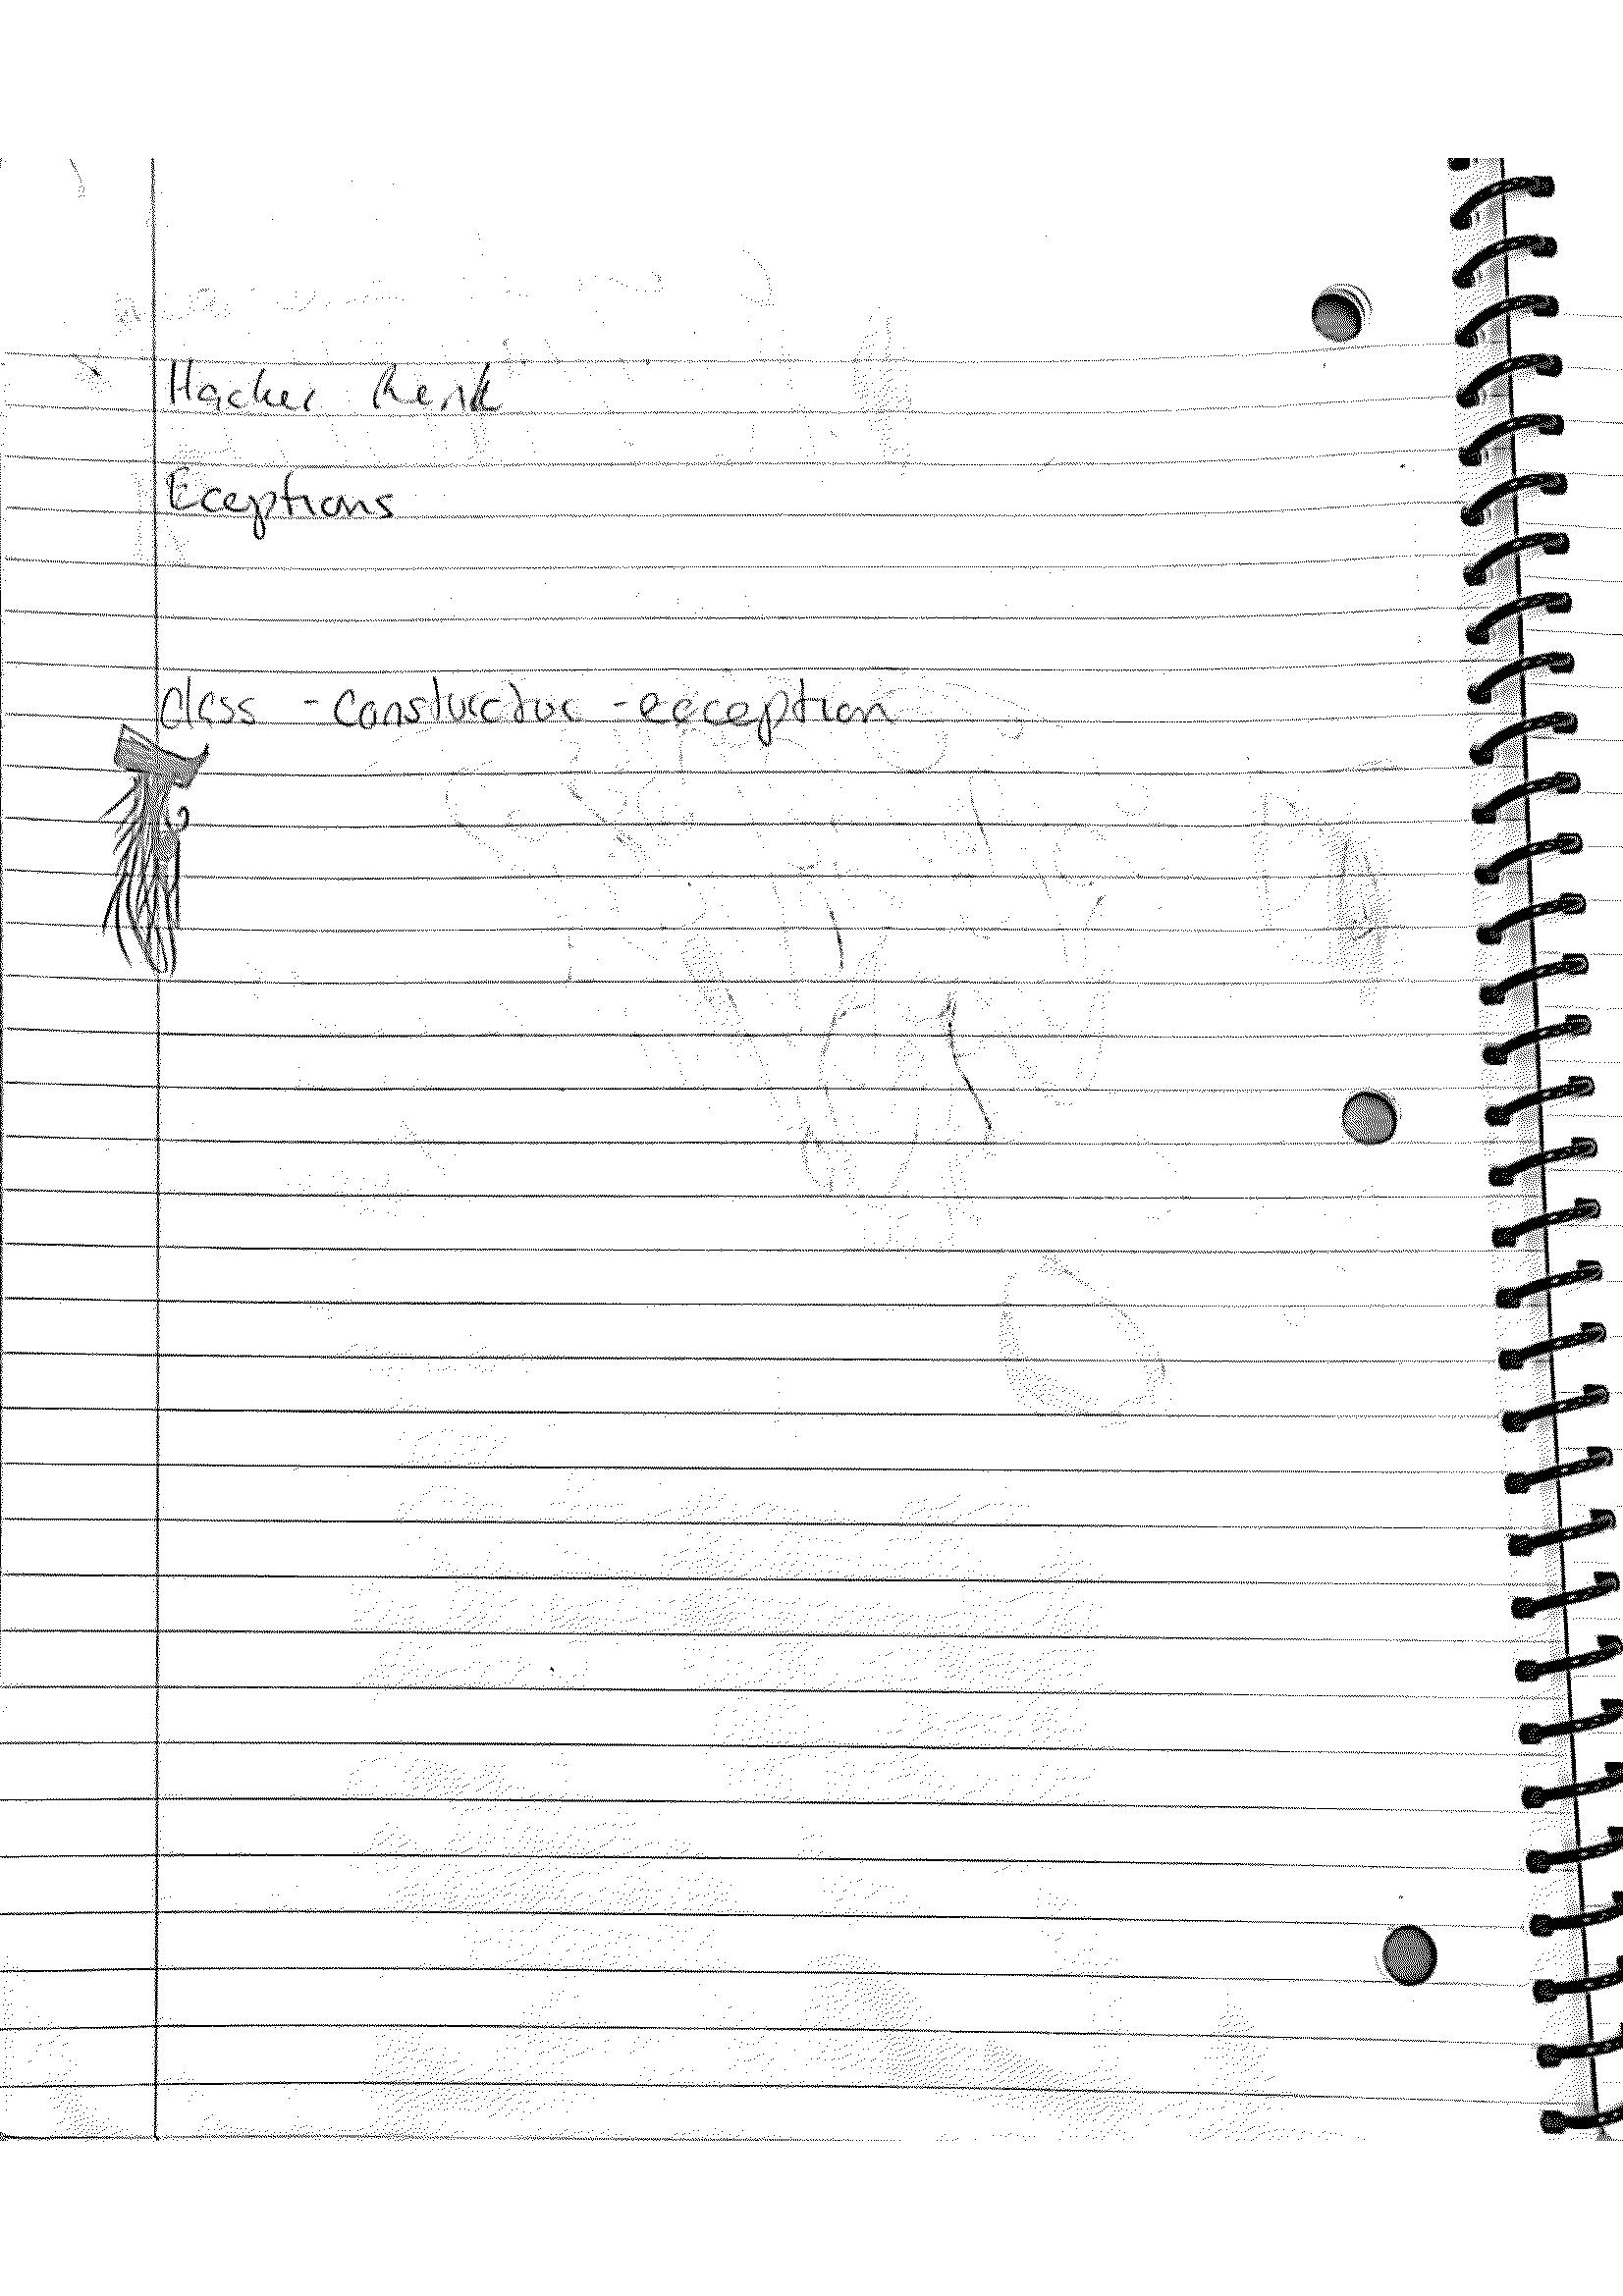 Hacker Rank
Eceptions
class - constuctuc - eeception